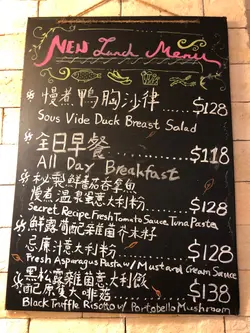 NEN Lunch Menu
慢煮鴨胸沙律......$128
Sous Vide Duck Breast Salad
全日早餐......$118
All Day Breakfast
秘製鮮蕃茄吞拿魚
慢煮溫泉蛋意大利粉......$128
Secret Recipe Fresh Tomato Sauce Tuna Pasta
鮮露荀配雜菌
忌廉汁意大利粉......$128
Fresh Asparagus Pasta w/ Mustard Cream Sauce
黑松露雜菌意大利飯......$138
配原隻大啡菇
Black Truffle Risotto w/ Portobello Mushroom